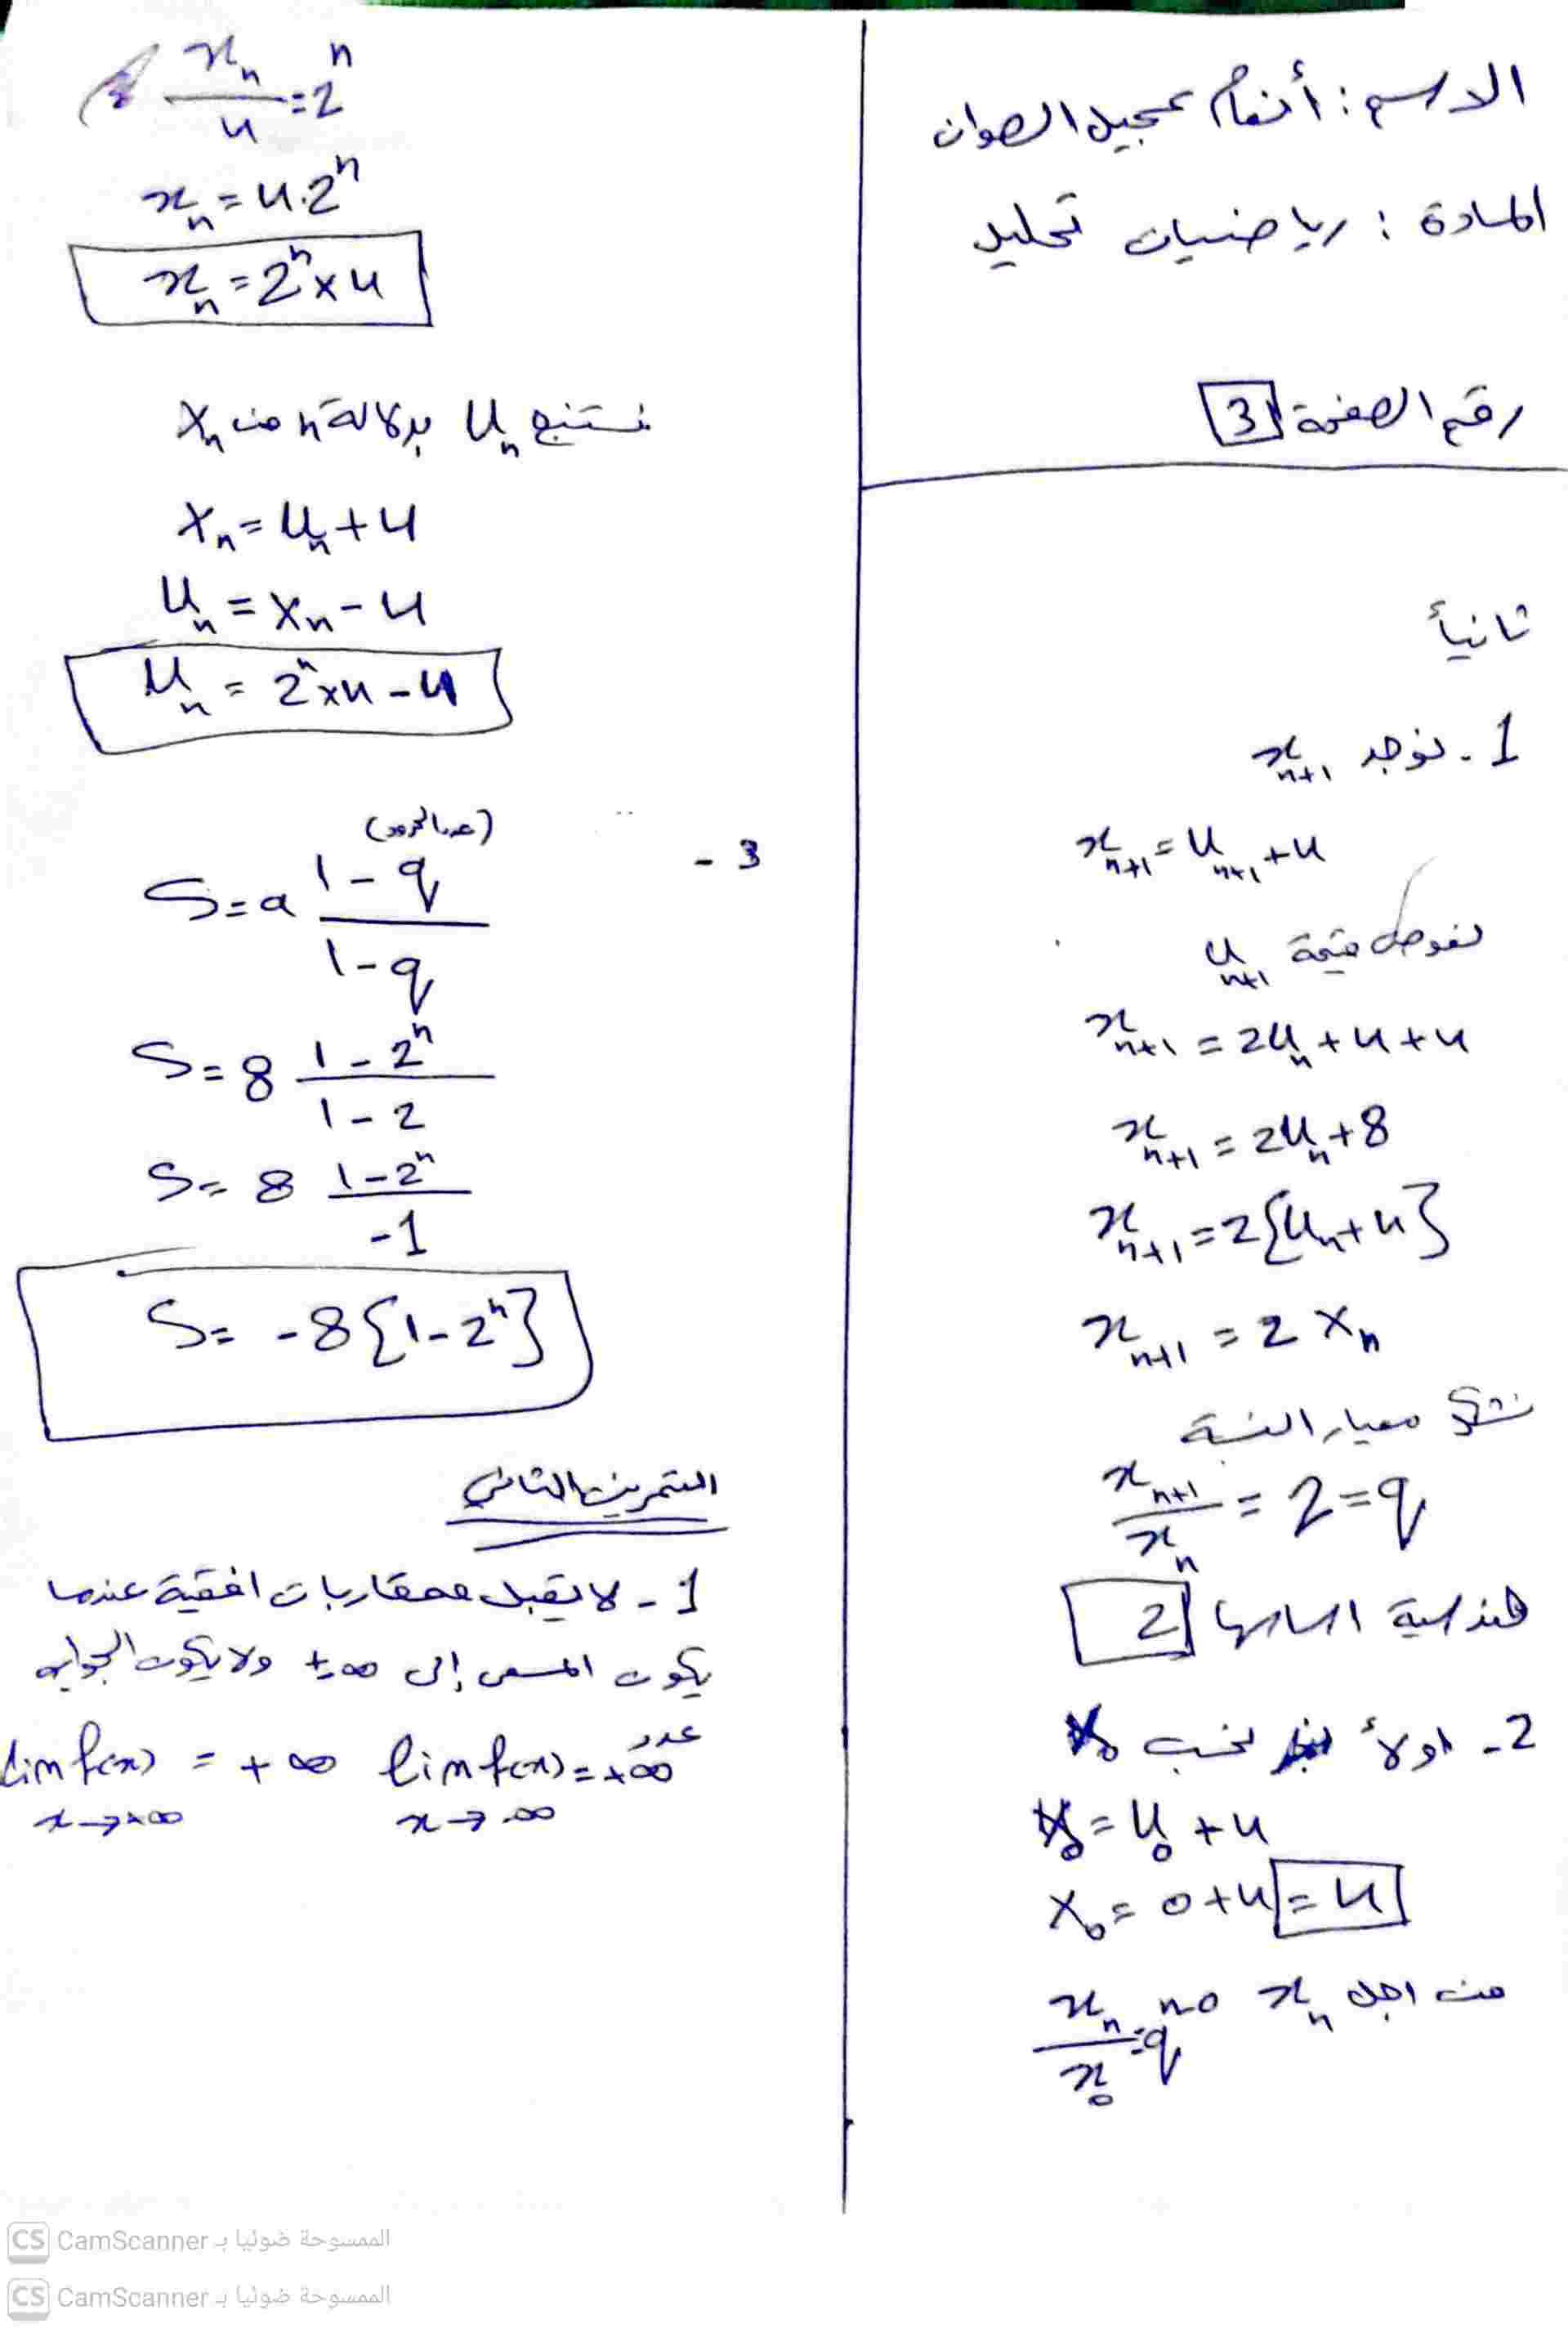 الاسم : أنغام عجيل الصوان
المادة : رياضيات تحليل
رقم الصفحة 3
ثانياً
1 - نوجد x_{n+1}
x_{n+1} = u_{n+1} + 4
نعوض قيمة u_{n+1}
x_{n+1} = 2u_n + 4 + 4
x_{n+1} = 2u_n + 8
x_{n+1} = 2{u_n + 4}
x_{n+1} = 2 x_n
معيار النسبة
x_{n+1} / x_n = 2 = q
هندسية اساسها 2
2 - اولاً نحسب x_0
x_0 = u_0 + 4
x_0 = 0 + 4 = 4
من اجل x_n
x_n / x_0 = q^{n-0}
x_n / 4 = 2^n
x_n = 4 . 2^n
x_n = 2^n × 4
نستنتج u_n بدلالة n من x_n
x_n = u_n + 4
u_n = x_n - 4
u_n = 2^n × 4 - 4
3 -
S = a (1 - q^{(عدد الحدود)}) / (1 - q)
S = 8 (1 - 2^n) / (1 - 2)
S = 8 (1 - 2^n) / -1
S = -8 {1 - 2^n}
التمرين الثاني
1 - لا يقبل مقاربات افقية عندما
يكون المسعى إلى ±∞ ولا يكون الجواب
عدد
lim f(x) = +∞ lim f(x) = +∞
x → +∞ x → -∞
الممسوحة ضوئيا بـ CamScanner
الممسوحة ضوئيا بـ CamScanner